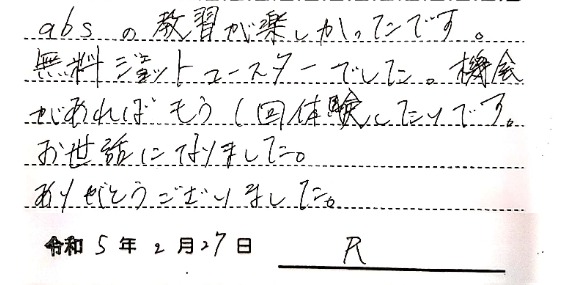 absの教習が楽しかったです。
無料ジェットコースターでした。機会
があればもう1回体験したいです。
お世話になりました。
ありがとうございました。
令和5年2月27日 R